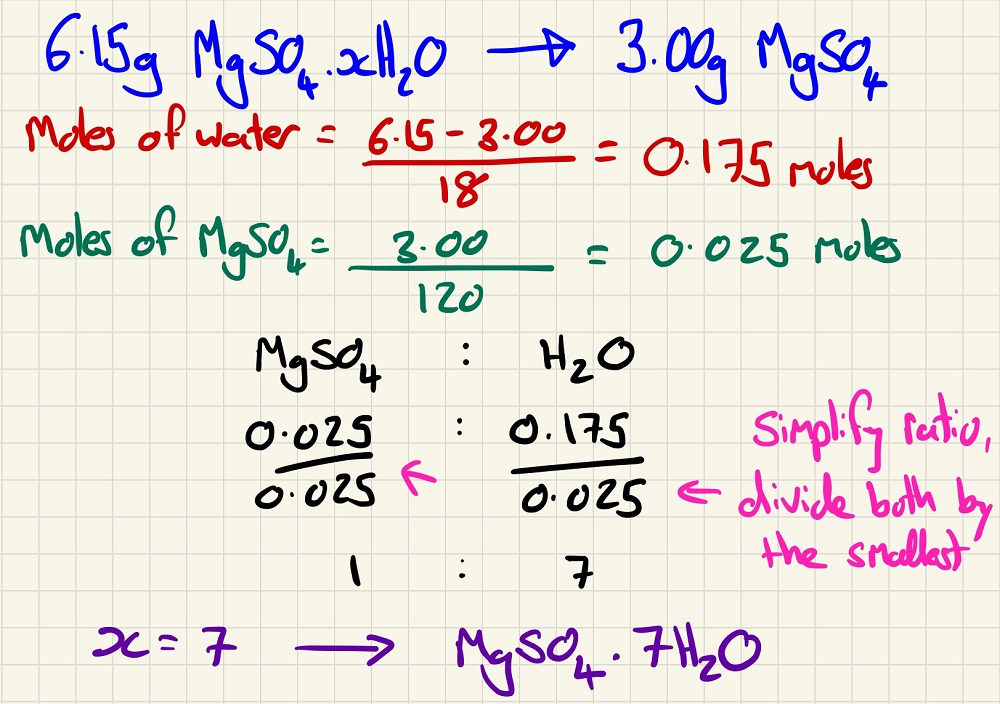 6.15g MgSO₄.xH₂O → 3.00g MgSO₄
Moles of water = 6.15 - 3.00 / 18 = 0.175 moles
Moles of MgSO₄ = 3.00 / 120 = 0.025 moles
MgSO₄ : H₂O
0.025 : 0.175
0.025 ← 0.025 ← 
1 : 7
Simplify ratio,
divide both by
the smallest
x = 7 → MgSO₄.7H₂O